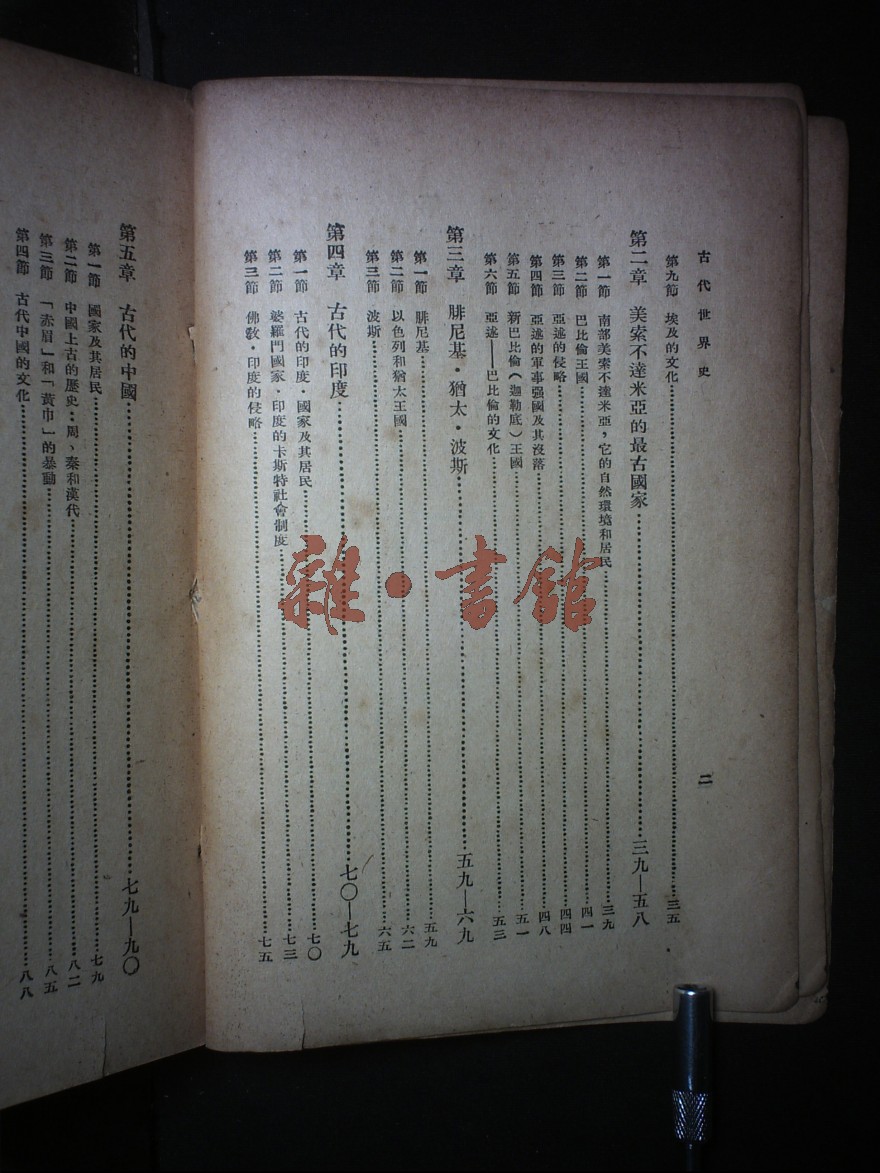 古代世界史
二
第九節 埃及的文化……三五
第二章 美索不達米亞的最古國家……三九—五八
第一節 南部美索不達米亞，它的自然環境和居民……三九
第二節 巴比倫王國……四一
第三節 亞述的侵略……四四
第四節 亞述的軍事强國及其沒落……四八
第五節 新巴比倫（迦勒底）王國……五一
第六節 亞述——巴比倫的文化……五三
第三章 腓尼基·猶太·波斯……五九—六九
第一節 腓尼基……五九
第二節 以色列和猶太王國……六二
第三節 波斯……六五
第四章 古代的印度……七〇—七九
第一節 古代的印度·國家及其居民……七〇
第二節 婆羅門國家·印度的卡斯特社會制度……七三
第三節 佛敎·印度的侵略……七五
第五章 古代的中國……七九—九〇
第一節 國家及其居民……七九
第二節 中國上古的歷史··周、秦和漢代……八二
第三節 「赤眉」和「黃巾」的暴動……八五
第四節 古代中國的文化……八八
雜·書館